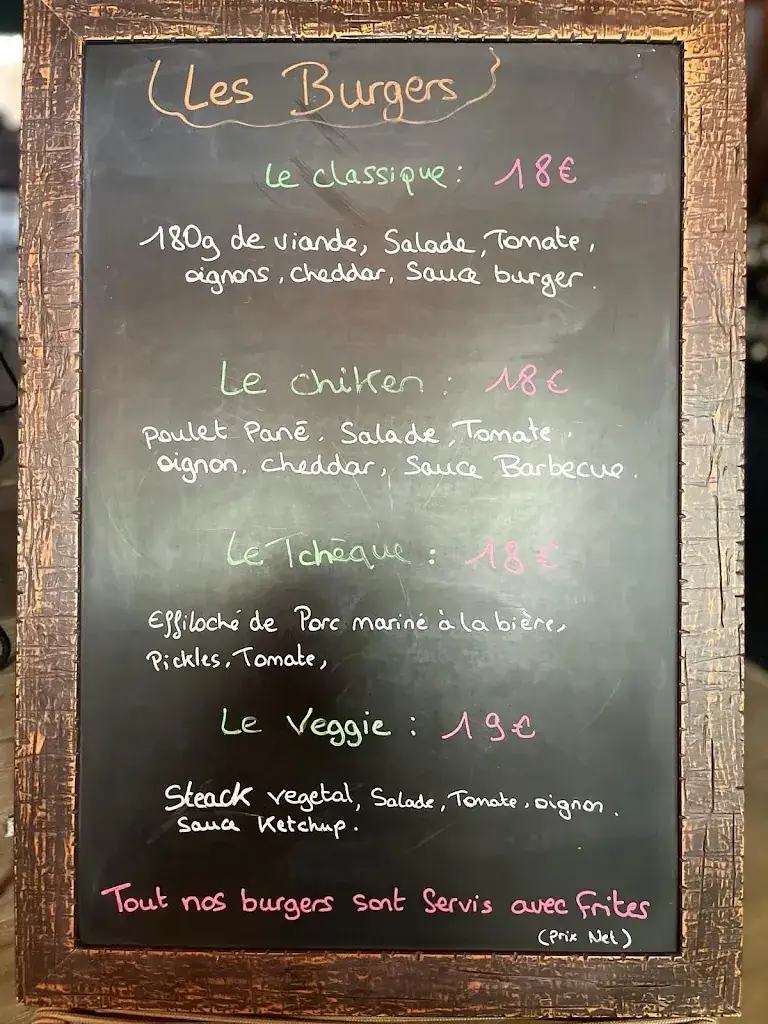 Les Burgers
Le classique : 18€
180g de viande, Salade, Tomate,
oignons, cheddar, Sauce burger.
Le chiken : 18€
poulet Pané, Salade, Tomate,
oignon, cheddar, Sauce Barbecue.
Le Tchèque : 18€
Effiloché de Porc mariné à la bière,
Pickles, Tomate,
Le Veggie : 19€
Steack vegetal, Salade, Tomate, oignon.
Sauce Ketchup.
Tout nos burgers sont Servis avec frites
(Prix Net)